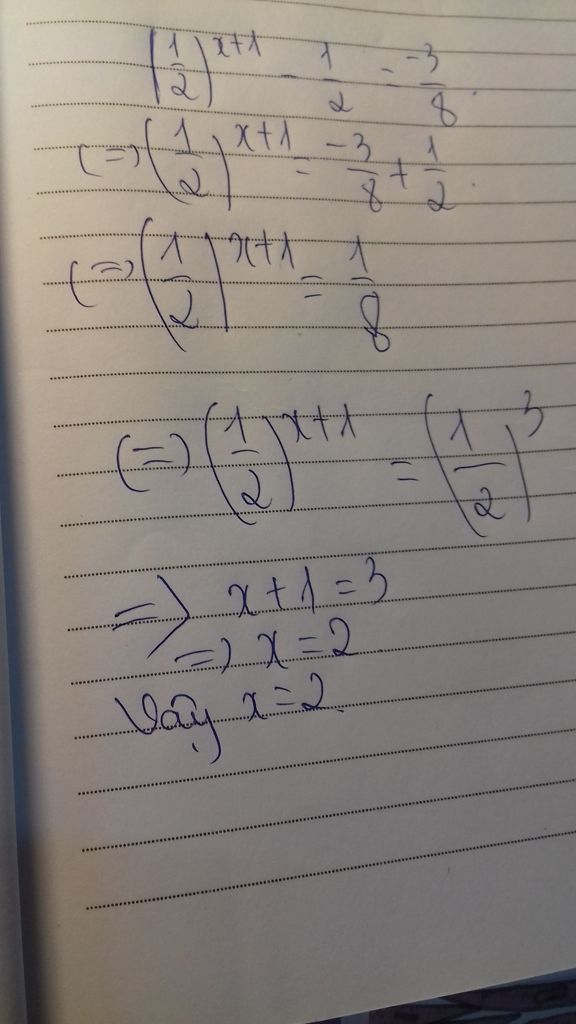 (1/2)^x+1 - 1/2 = -3/8.
(=) (1/2)^x+1 = -3/8 + 1/2.
(=) (1/2)^x+1 = 1/8
(=) (1/2)^x+1 = (1/2)^3
=> x+1=3
=> x=2
Vậy x=2.